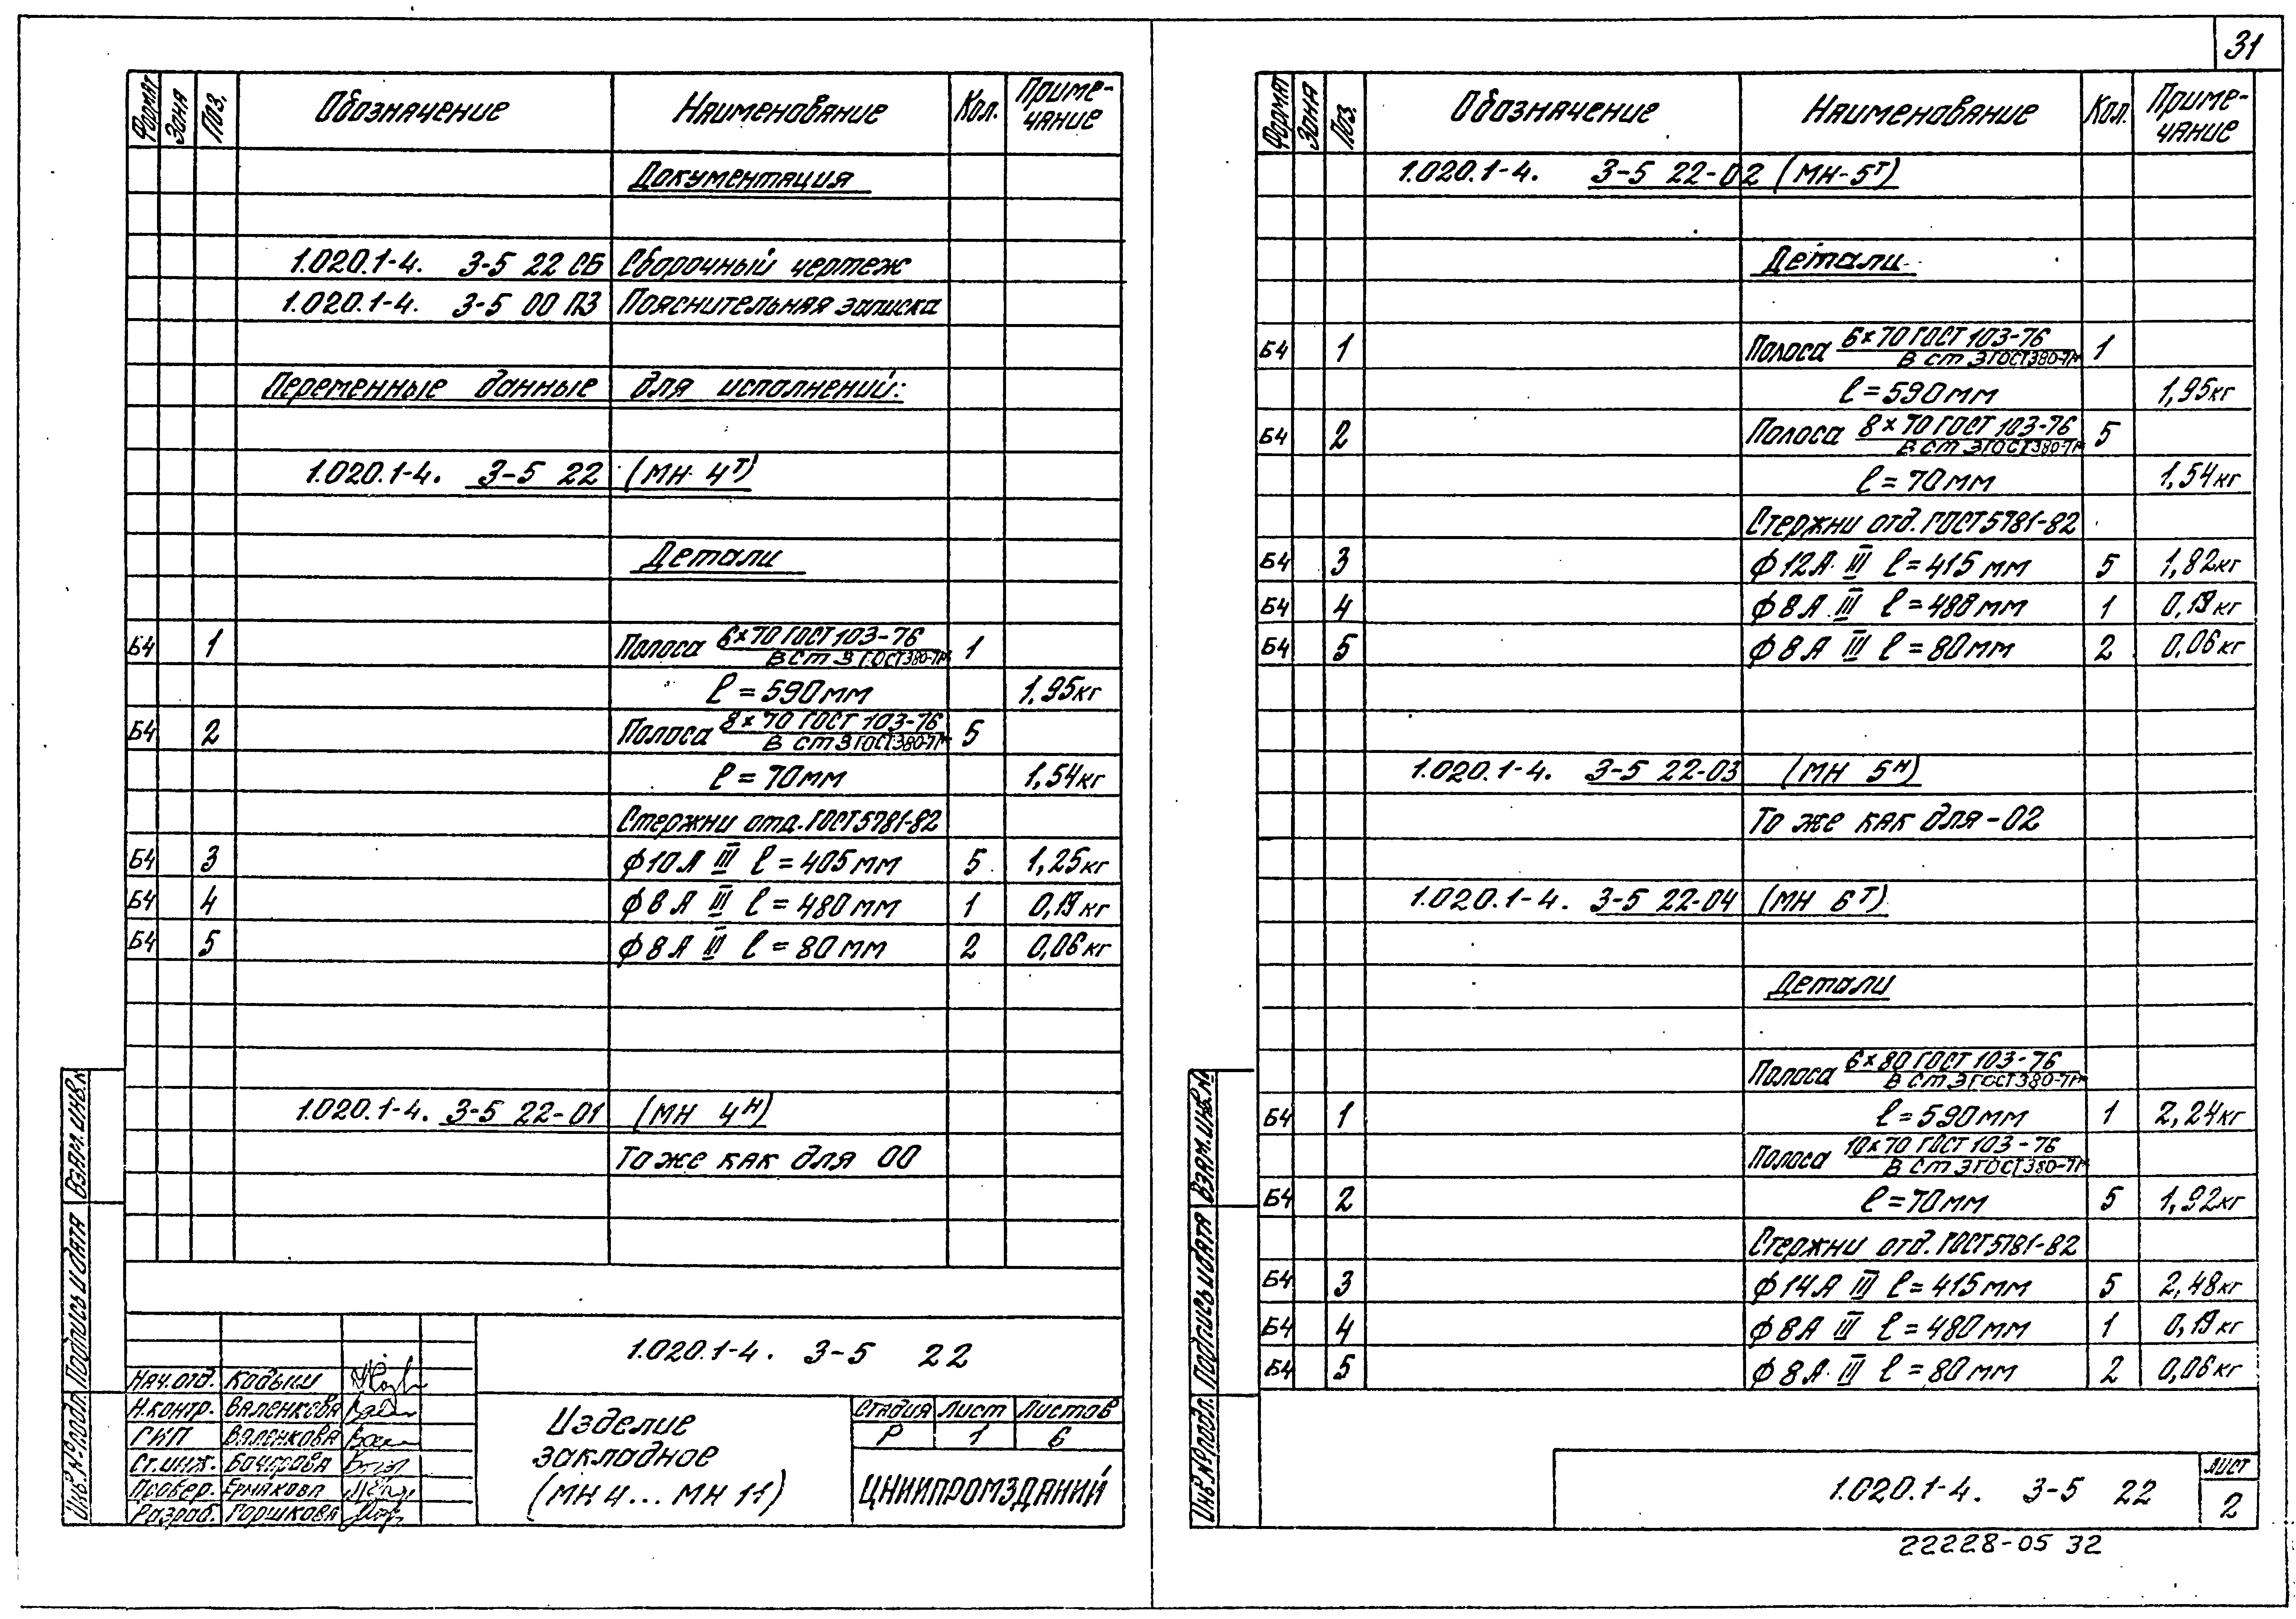 31
Формат Зона Поз. Обозначение Наименование Кол. Приме-
чание
Документация
1.020.1-4. 3-5 22 СБ Сборочный чертеж
1.020.1-4. 3-5 00 ПЗ Пояснительная записка
Переменные данные для исполнений:
1.020.1-4. 3-5 22 (МН 4Т)
Детали
Б4 1 Полоса 6×70 ГОСТ 103-76 1
В ст 3 ГОСТ 380-71*
ℓ = 590 мм 1,95 кг
Б4 2 Полоса 8×70 ГОСТ 103-76 5
В ст 3 ГОСТ 380-71*
ℓ = 70 мм 1,54 кг
Стержни отд. ГОСТ 5781-82
Б4 3 ф10А III ℓ = 405 мм 5 1,25 кг
Б4 4 ф8А III ℓ = 480 мм 1 0,19 кг
Б4 5 ф8А III ℓ = 80 мм 2 0,06 кг
1.020.1-4. 3-5 22-01 (МН 4Н)
То же как для 00
1.020.1-4. 3-5 22
Нач.отд. Кодыш
Н.контр. Валенкова
ГИП Валенкова
Ст.инж.
Провер. Ермакова
Разраб. Горшкова
Изделие
закладное
(МН 4... МН 11)
Стадия Лист Листов
Р 1 6
ЦНИИПРОМЗДАНИЙ
Инв.№подл. Подпись и дата Взам.инв.№
Формат Зона Поз. Обозначение Наименование Кол. Приме-
чание
1.020.1-4. 3-5 22-02 (МН-5Т)
Детали
Б4 1 Полоса 6×70 ГОСТ 103-76 1
В ст 3 ГОСТ 380-71*
ℓ = 590 мм 1,95 кг
Б4 2 Полоса 8×70 ГОСТ 103-76 5
В ст 3 ГОСТ 380-71*
ℓ = 70 мм 1,54 кг
Стержни отд. ГОСТ 5781-82
Б4 3 ф12А III ℓ = 415 мм 5 1,82 кг
Б4 4 ф8А III ℓ = 480 мм 1 0,19 кг
Б4 5 ф8А III ℓ = 80 мм 2 0,06 кг
1.020.1-4. 3-5 22-03 (МН 5Н)
То же как для -02
1.020.1-4. 3-5 22-04 (МН 6Т)
Детали
Полоса 6×80 ГОСТ 103-76
В ст 3 ГОСТ 380-71*
Б4 1 ℓ = 590 мм 1 2,24 кг
Полоса 10×70 ГОСТ 103-76
В ст 3 ГОСТ 380-71*
Б4 2 ℓ = 70 мм 5 1,92 кг
Стержни отд. ГОСТ 5781-82
Б4 3 ф14А III ℓ = 415 мм 5 2,48 кг
Б4 4 ф8А III ℓ = 480 мм 1 0,19 кг
Б4 5 ф8А III ℓ = 80 мм 2 0,06 кг
Инв.№подл. Подпись и дата Взам.инв.№
1.020.1-4. 3-5 22
Лист
2
22228-05 32